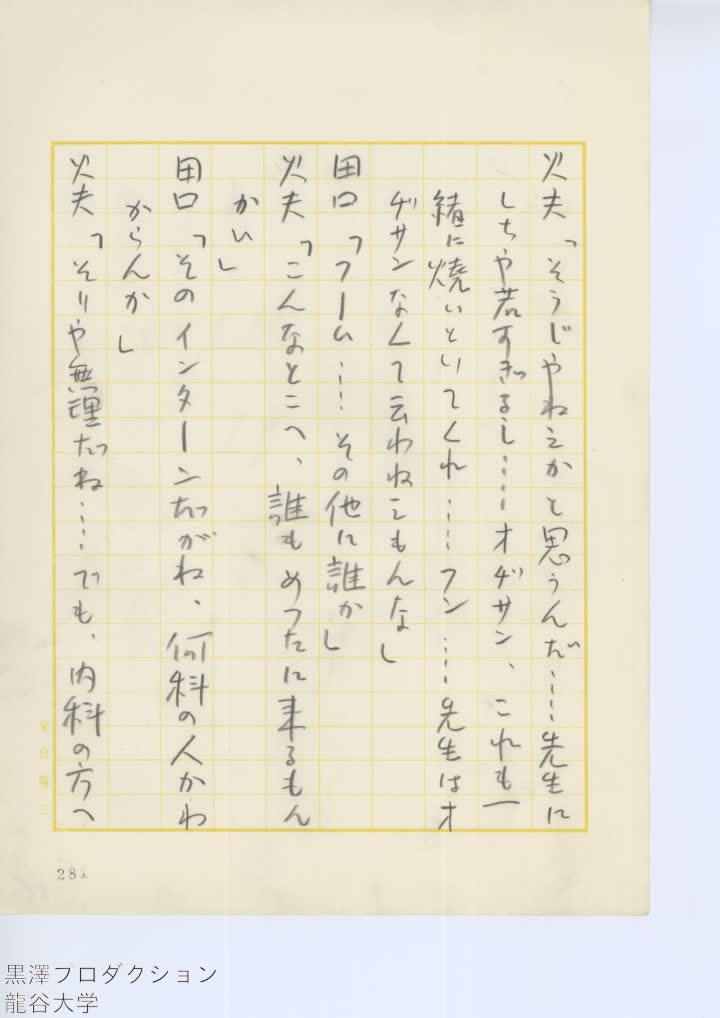 火夫「そうじやねえかと思うんだ……先生に
しちや若すぎるし……オヂサン、これも一
緒に焼いといてくれ……フン……先生はオ
ヂサンなくて云わねえもんな」
田口「フーム……その他に誰か」
火夫「こんなとこへ、誰もめつたに来るもん
かい」
田口「そのインターンだがね、何科の人かわ
からんか」
火夫「そりや無理だね……でも、内科の方へ
28
黒澤プロダクション
龍谷大学